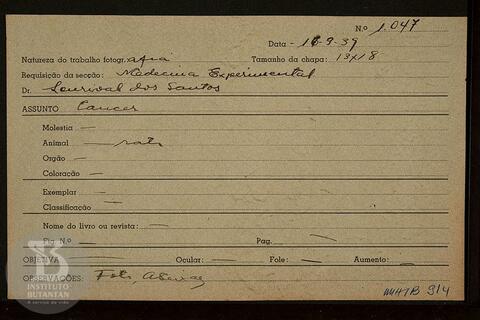 N.o 1.047
Data - 16-9-39
Natureza do trabalho fotogr. afia Tamanho da chapa: 13x18
Requisição da secção: Medecina Experimental
Dr. Lourival dos Santos
ASSUNTO Cancer
Molestia —
Animal — rato
Orgão —
Coloração —
Exemplar —
Classificação —
Nome do livro ou revista: —
Fig. N.o — Pag. —
OBJETIVA — Ocular: — Fole: — Aumento: —
OBSERVAÇÕES: Foto,
INSTITUTO
BUTANTAN
A serviço da vida
314